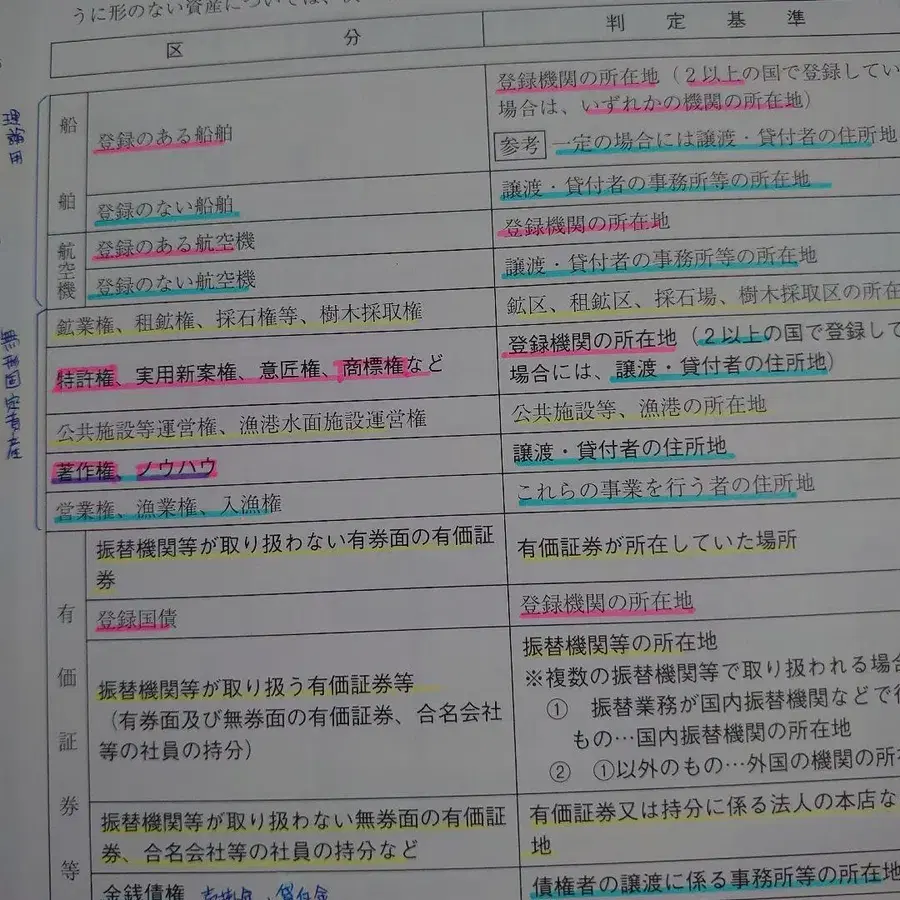 うに形のない資産については、
区 分
判 定 基 準
船 舶
登録のある船舶
登録機関の所在地（２以上の国で登録してい
場合は、いずれかの機関の所在地）
参考 一定の場合には譲渡・貸付者の住所地
登録のない船舶
譲渡・貸付者の事務所等の所在地
航空機
登録のある航空機
登録機関の所在地
登録のない航空機
譲渡・貸付者の事務所等の所在地
鉱業権、租鉱権、採石権等、樹木採取権
鉱区、租鉱区、採石場、樹木採取区の所在
無形固定資産
特許権、実用新案権、意匠権、商標権など
登録機関の所在地（２以上の国で登録して
場合には、譲渡・貸付者の住所地）
公共施設等運営権、漁港水面施設運営権
公共施設等、漁港の所在地
著作権、ノウハウ
譲渡・貸付者の住所地
営業権、漁業権、入漁権
これらの事業を行う者の住所地
有 価 証 券 等
振替機関等が取り扱わない有券面の有価証
券
有価証券が所在していた場所
登録国債
登録機関の所在地
振替機関等が取り扱う有価証券等
（有券面及び無券面の有価証券、合名会社
等の社員の持分）
振替機関等の所在地
※複数の振替機関等で取り扱われる場合
① 振替業務が国内振替機関などで行
もの…国内振替機関の所在地
② ①以外のもの…外国の機関の所在
振替機関等が取り扱わない無券面の有価証
券、合名会社等の社員の持分など
有価証券又は持分に係る法人の本店な
地
金銭債権 貸付金
債権者の譲渡に係る事務所等の所在地